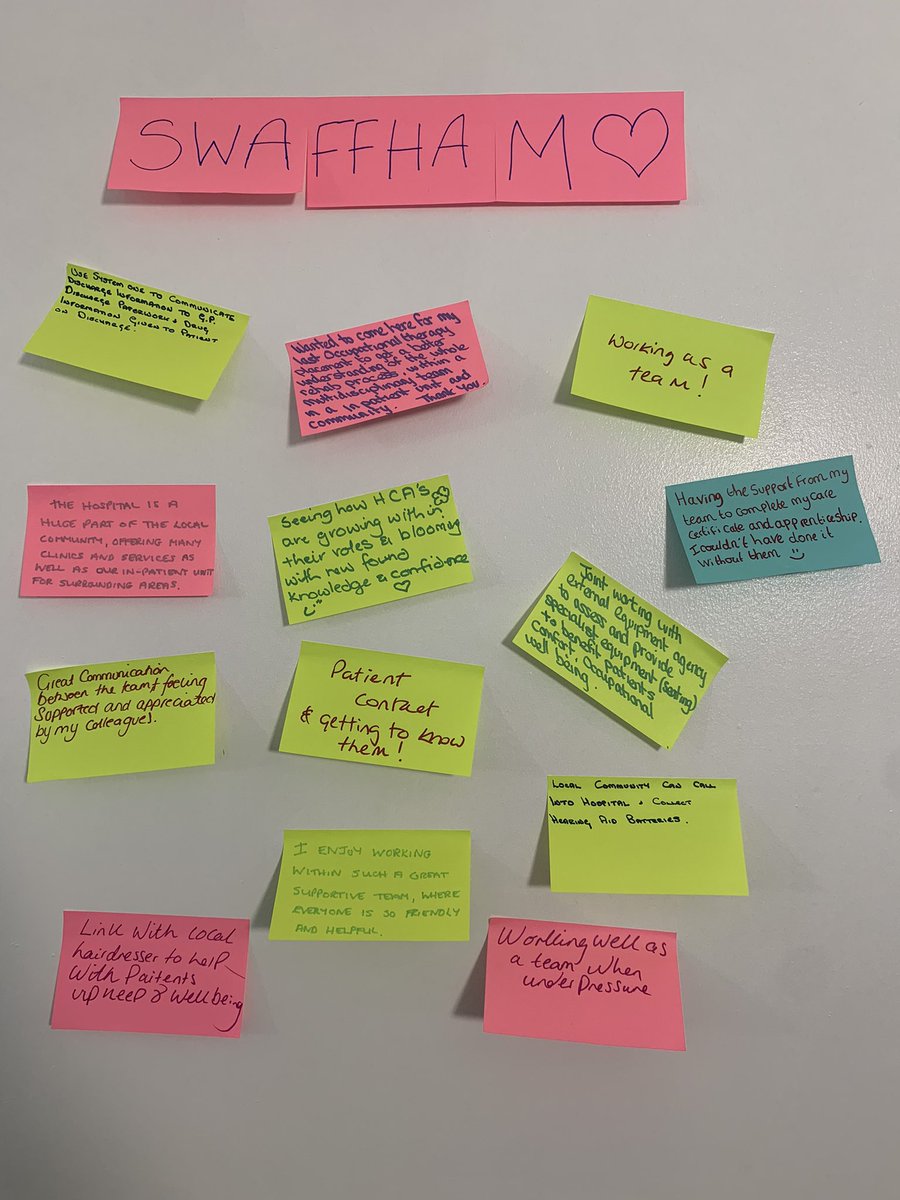 SWAFFHAM ♡
USE SYSTEM ONE TO COMMUNICATE
DISCHARGE INFORMATION TO G.P.
DISCHARGE PAPERWORK + DRUG
INFORMATION GIVEN TO PATIENT
ON DISCHARGE!
Wanted to come here for my
last occupational therapy
placement to get a better
understanding of the whole
rehab process, within a
multidisciplinary team
in a in patient unit and
community. Thank You.
Working as a
team!
THE HOSPITAL IS A
HUGE PART OF THE LOCAL
COMMUNITY, OFFERING MANY
CLINICS AND SERVICES AS
WELL AS OUR IN-PATIENT UNIT
FOR SURROUNDING AREAS.
Seeing how HCA's
are growing within
their roles & blooming
with new found
knowledge & confidence
Having the support from my
team to complete my care
certificate and apprenticeship.
I couldn't have done it
without them
Joint working with
external equipment agency
to assess and provide
specialist equipment (seating)
to benefit patients
comfort. Occupational
well being.
Great Communication
between the team & feeling
supported and appreciated
by my colleagues.
Patient
Contact
& getting to know
them!
LOCAL COMMUNITY CAN CALL
INTO HOSPITAL + COLLECT
HEARING AID BATTERIES.
I ENJOY WORKING
WITHIN SUCH A GREAT
SUPPORTIVE TEAM, WHERE
EVERYONE IS SO FRIENDLY
AND HELPFUL.
Link with local
hairdresser to help
with Paitents
up keep & wellbeing
Working well as
a team when
under pressure